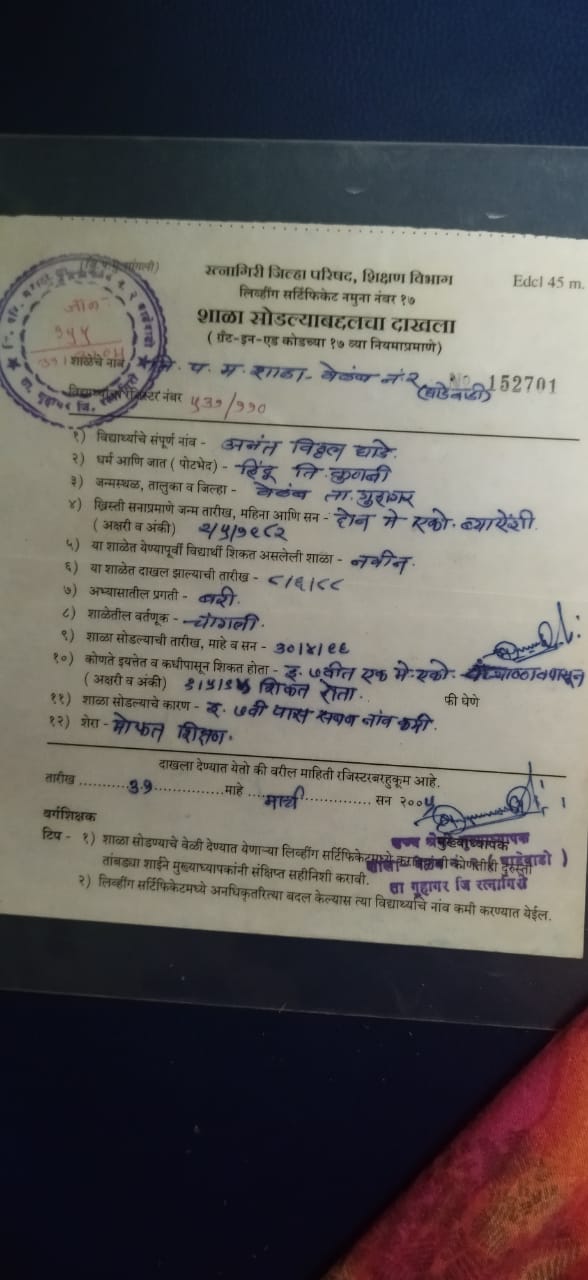 (जि. प. मु. सांगली)
रत्नागिरी जिल्हा परिषद, शिक्षण विभाग
Edcl 45 m.
लिव्हींग सर्टिफिकेट नमुना नंबर १७
शाळा सोडल्याबद्दलचा दाखला
( ग्रँट-इन-एड कोडच्या १७ व्या नियमाप्रमाणे)
शाळेचे नांव जि. प. म. शाळा - वेळंब नं २ (घाडेवाडी)
No 152701
रजिस्टर नंबर ५३७/११०
१) विद्यार्थ्याचे संपूर्ण नांव - अनंत विठ्ठल घाडे.
२) धर्म आणि जात ( पोटभेद) - हिंदू ति. कुणबी
३) जन्मस्थळ, तालुका व जिल्हा - वेळंब ता. गुहागर
४) ख्रिस्ती सनाप्रमाणे जन्म तारीख, महिना आणि सन - दोन मे एको. ब्याऐंशी.
( अक्षरी व अंकी) २/५/१९८२
५) या शाळेत येण्यापूर्वी विद्यार्थी शिकत असलेली शाळा - नवीन.
६) या शाळेत दाखल झाल्याची तारीख - ८/६/८८
७) अभ्यासातील प्रगती - बरी.
८) शाळेतील वर्तणूक - चांगली
९) शाळा सोडल्याची तारीख, माहे व सन - ३०/४/९६
१०) कोणते इयत्तेत व कधीपासून शिकत होता - इ. ७वीत एक मे एको. पंच्याण्णवपासून
( अक्षरी व अंकी) १/५/९५ शिकत होता.
फी घेणे
११) शाळा सोडल्याचे कारण - इ. ७वी पास सबब नांव कमी.
१२) शेरा - मोफत शिक्षण.
दाखला देण्यात येतो की वरील माहिती रजिस्टरबरहुकूम आहे.
तारीख ..........३१..........माहे ....मार्च.......... सन २००५
वर्गशिक्षक
मुख्याध्यापक
टिप - १) शाळा सोडण्याचे वेळी देण्यात येणाऱ्या लिव्हींग सर्टिफिकेटमध्ये कोणतीही दुरुस्ती
तांबड्या शाईने मुख्याध्यापकांनी संक्षिप्त सहीनिशी करावी.
(घाडेवाडी)
ता गुहागर जि रत्नागिरी
२) लिव्हींग सर्टिफिकेटमध्ये अनधिकृतरित्या बदल केल्यास त्या विद्यार्थ्याचे नांव कमी करण्यात येईल.